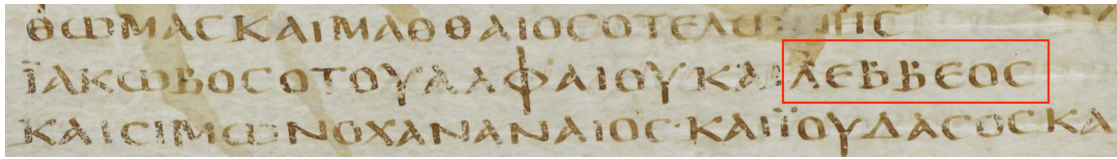 ΘΩΜΑϹΚΑΙΜΑΘΘΑΙΟϹΟΤΕΛΩΝΗϹ
ΪΑΚΩΒΟϹΟΤΟΥΑΛΦΑΙΟΥΚΑΙΛΕΒΒΕΟϹ
ΚΑΙϹΙΜΩΝΟΧΑΝΑΝΑΙΟϹ·ΚΑΙΪΟΥΔΑϹΟϹΚΑ